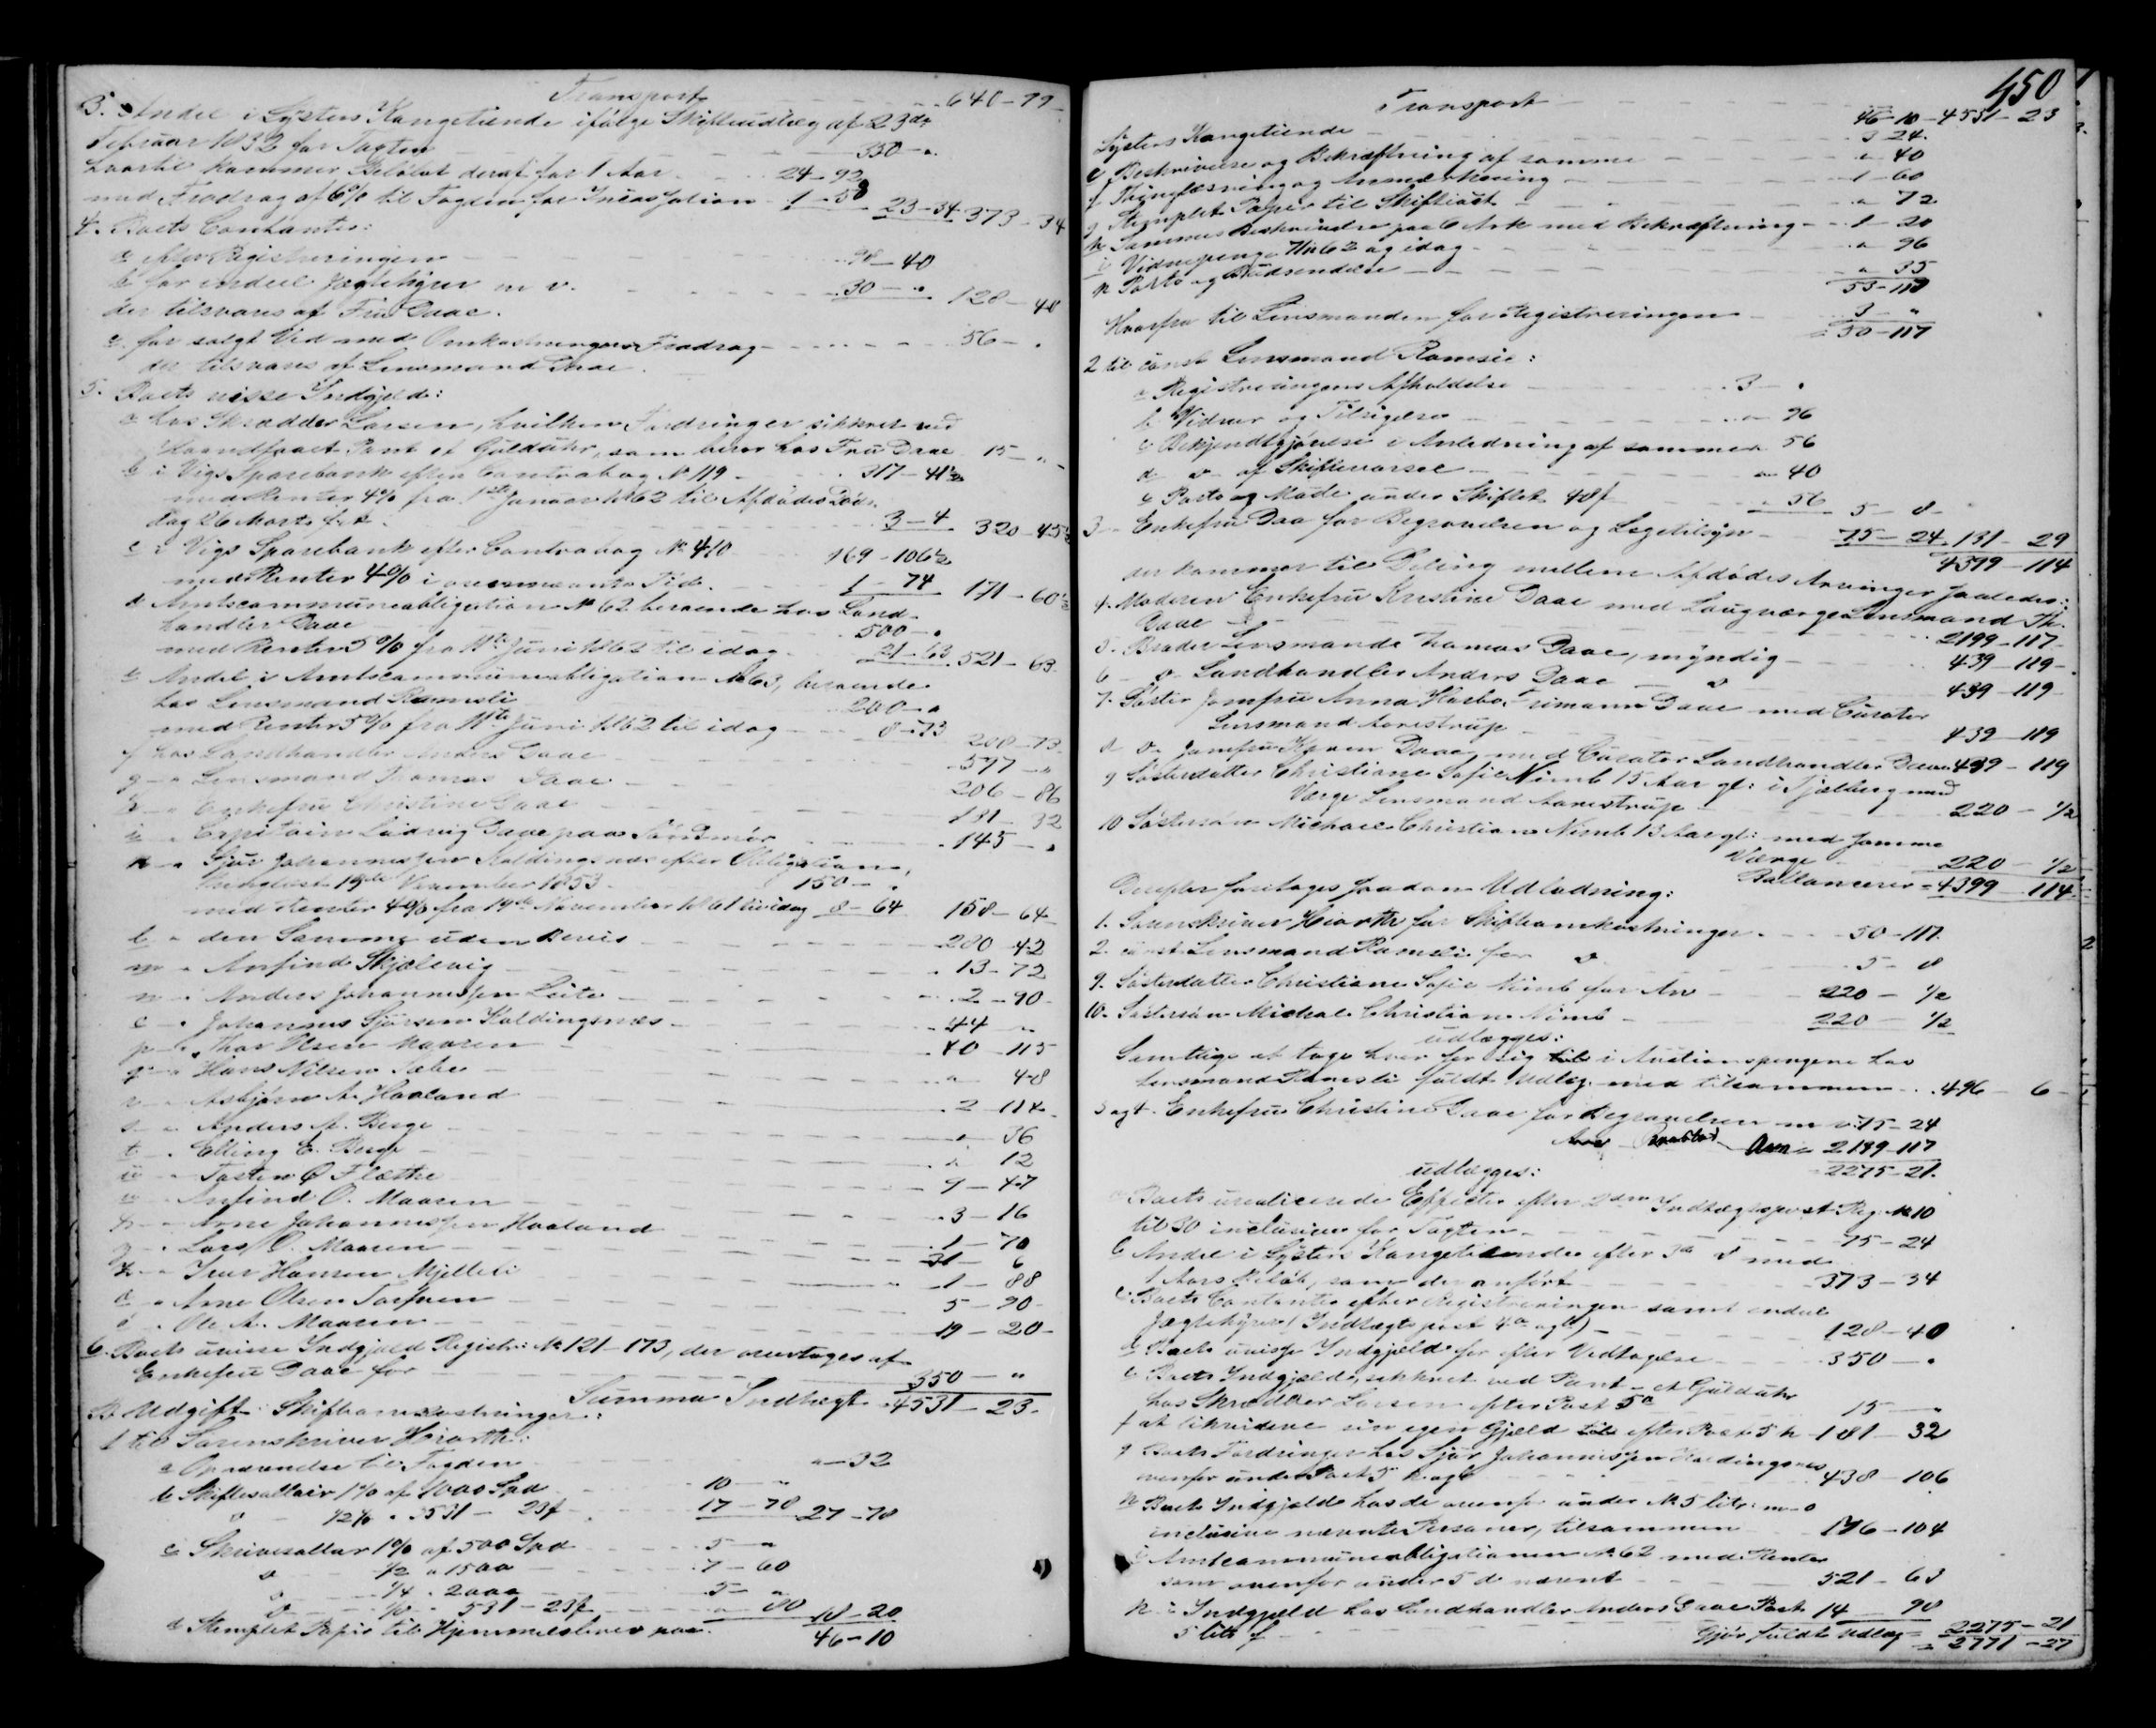 Transport 640-99
3. Andel i Lysters Kongetiende ifølge Skifteudlæg af 23de
Februar 1832 for Taxten 350 - "
hvortil kommer Beløbet deraf for 1 Aar 24-92
med Fradrag af 6% til Fogden for Incassation 1-58 23-34 373-34
4. Boets Contanter:
a efter Registreringen 98-40
b for endeel Jægtehyrer m.v. 30 - " 128-40
der tilsvares af Fru Daae.
c for solgt Ved med Omkostningers Fradrag 56 - "
der tilsvares af Lensmand Daae.
5. Boets visse Indgjeld:
a hos Skrædder Larsen, hvilken Fordring er sikkret ved
Haandfaaet Pant et Gulduhr, som beror hos Fru Daae 15 - "
b i Vigs Sparebank efter Contrabog No 119 317-41½
med Renter 4% fra 1ste Januar 1862 til Afdødes Døds-
dag 26 Marts f.A. 3-4 320-45½
c i Vigs Sparebank efter Contrabog No 410 169-106½
med Renter 4% i ovennævnte Tid 1-74 171-60½
d Amtscommuneobligation No 62 beroende hos Land-
handler Daae 500 - "
med Renter 5% fra 11te Juni 1862 til idag 21-63 521-63
e Andel i Amtscommuneobligation No 63, beroende
hos Lensmand Ramsli 200 - "
med Renter 5% fra 11te Juni 1862 til idag 8-73 208-73
f hos Landhandler Anders Daae 597 - "
g - " Lensmand Thomas Daae 206-86
h - " Enkefru Christine Daae 181-32
i - " Capitain Ludvig Daae paa Søndmør 145 - "
k - " Sjur Johannessen Koldingsnæs efter Obligation,
thinglæst 19de November 1853 150 - "
med Renter 4% fra 19de November 1861 til idag 8-64 158-64
l " den Samme uden Bevis 280-42
m " Anfind Skjølevig 13-72
n " Anders Johannessen Leite 2-90
o " Johannes Sjursen Koldingsnæs 44 - "
p " Thor Olsen Maaren 40-115
q " Hans Nilsen Sæbø " 48
r " Asbjørn A. Haaland 2-114
s " Anders A. Berge " 36
t " Elling E. Berge " 12
u " Torsten O Flæthe 9-47
v " Anfind O. Maaren 3-16
x " Arne Johannessen Haaland 1-70
y " Lars O. Maaren 31-6
z " Iver Hansen Mjelleli 1-88
æ " Arne Olsen 5-90
ø " Ole A. Maaren 19-20
6. Boets uvisse Indgjeld Registr: No 121-173, der overtages af
Enkefru Daae for 350 - "
Summa Indtægt 4531-23
B Udgift: Skifteomkostninger:
1 til Sorenskriver Hiorth:
a til Fogden " 32
b Skiftesallair 1% af 1000 Spd 10 - "
do ½% " 3531-23ß 17-78 27-78
c Skriversallar 1% af 500 Spd 5 - "
do ½ " 1500 7-60
do ¼ " 2000 5 - "
do 531-23ß " 80 18-20
d Stemplet Papir til Hjemmelsbrev paa 46-10
450
Transport 46-10 4531-23
Lysters Kongetiende 3-24
e Beskrivelse og Bekræftning af samme " 40
f Thinglæsning og Anmærkning 1-60
g Stemplet Papir til Skiftet " 72
h Sammes Beskrivelse paa 6 Ark med Bekræftning 1-20
i Vidnepenge 7/11 62 og idag " 96
k Porto og Budsendelse " 35
53-117
Hvorfra til Lensmanden for Registreringen 3 - "
50-117
2 til const Lensmand Ramsli:
a Registreringens Afholdelse 3 - "
b Vidner og Tilsigelse " 96
c Bekjendtgjørelse i Anledning af samme " 56
d do af Skiftevarsel " 40
e Porto og Møde under Skiftet 48ß " 56 5-8
3 Enkefru Daae for Begravelsen og Lægetilsyn 75-24 131-29
4399-114
der kommer til Deling mellem Afdødes Arvinger saaledes:
4. Moderen Enkefru Kristine Daae med Laugværge Lensmand Th.
Daae 2199-117
5. Broder Lensmand Thomas Daae, myndig 439-119
6 - do Landhandler Anders Daae do 439-119
7. Søster Jomfru Anna Harbo Daae med Curator
Lensmand Aarestrup 439-119
8 do Jomfru Karen Daae med Curator Landhandler Daae 439-119
9 Søsterdatter Christiane Sofie Nimb 15 Aar gl: i Tjølberg med
Værge Lensmand Aarestrup 220 - ½
10 Søstersøn Michael Christian Nimb 13 Aar gl: med samme
Værge 220 - ½
Ballancerer 4399-114
Derefter foretages saadan Udlodning:
1. Sorenskriver Hiorth for Skifteomkostninger 50-117
2. const Lensmand Ramsli for do 5-8
9. Søsterdatter Christiane Sofie Nimb for Arv 220 - ½
10. Søstersøn Michael Christian Nimb 220 - ½
udlægges:
Samtlige at tage hver for sig i Auctionspengene hos
Lensmand Ramsli fuldt Udlæg med tilsammen 496-6
3 og 4. Enkefru Christine Daae for Begravelsen m.v. 75-24
Arv 2199-117
2275-21
udlægges:
a Boets urealiserede Effecter efter 2den Indtægtspost Reg. No 10
til 30 inclusive for Taxten 75-24
b Andel i Lysters Kongetiende efter 3die do med
1 Aars Beløb, som der anført 373-34
c Boets Contanter efter Registreringen samt endeel
Jægtehyrer (Indtægts post 4 a og b) 128-40
d Boets uvisse Indgjeld for efter Vedtagelse 350 - "
e Boets Indgjeld, sikkret ved Pant - et Gulduhr
hos Skrædder Larsen efter Post 5a 15 - "
f at likvidere sin egen Gjeld efter Post 5 h 181-32
g Boets Fordringer hos Sjur Johannessen Koldingsnæs
ovenfor under Post 5 k og l 438-106
h Boets Indgjeld hos de ovenfor under No 5 litr: m-ø
inclusive nævnte Personer, tilsammen 176-104
i Amtscommuneobligationen No 62 med Renter
som ovenfor under 5 d nævnt 521-63
k i Indgjeld hos Landhandler Anders Daae Post 14-98
5 litr f 2275-21
Gjør fuldt Udlæg 2771-27